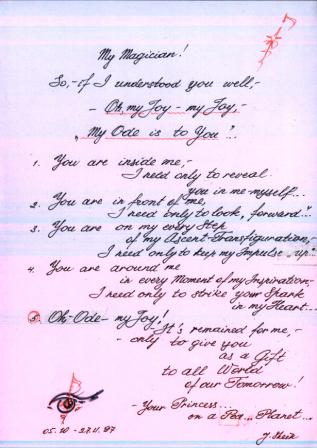 My Magician!
So,- if I understood you well,-
- Oh, my Joy - my Joy,-
„My Ode is to You"..
1. You are inside me,-
I need only to reveal
you in me-myself"...
2. You are in front of me,
I need only to look, forward"..
3. You are on my every Step
of my Ascent-Transfiguration,-
I need only to keep my Impulse „up"..
4. You are around me
in every Moment of my Inspiration-
I need only to strike your Spark
in my Heart...
5. Oh,-Ode- my Joy!
-It's remained for me,-
- only to give you
as a Gift
to all World
of our Tomorrow!
- Your Princess...
on a ... Planet...
05.10 - 27.11.97